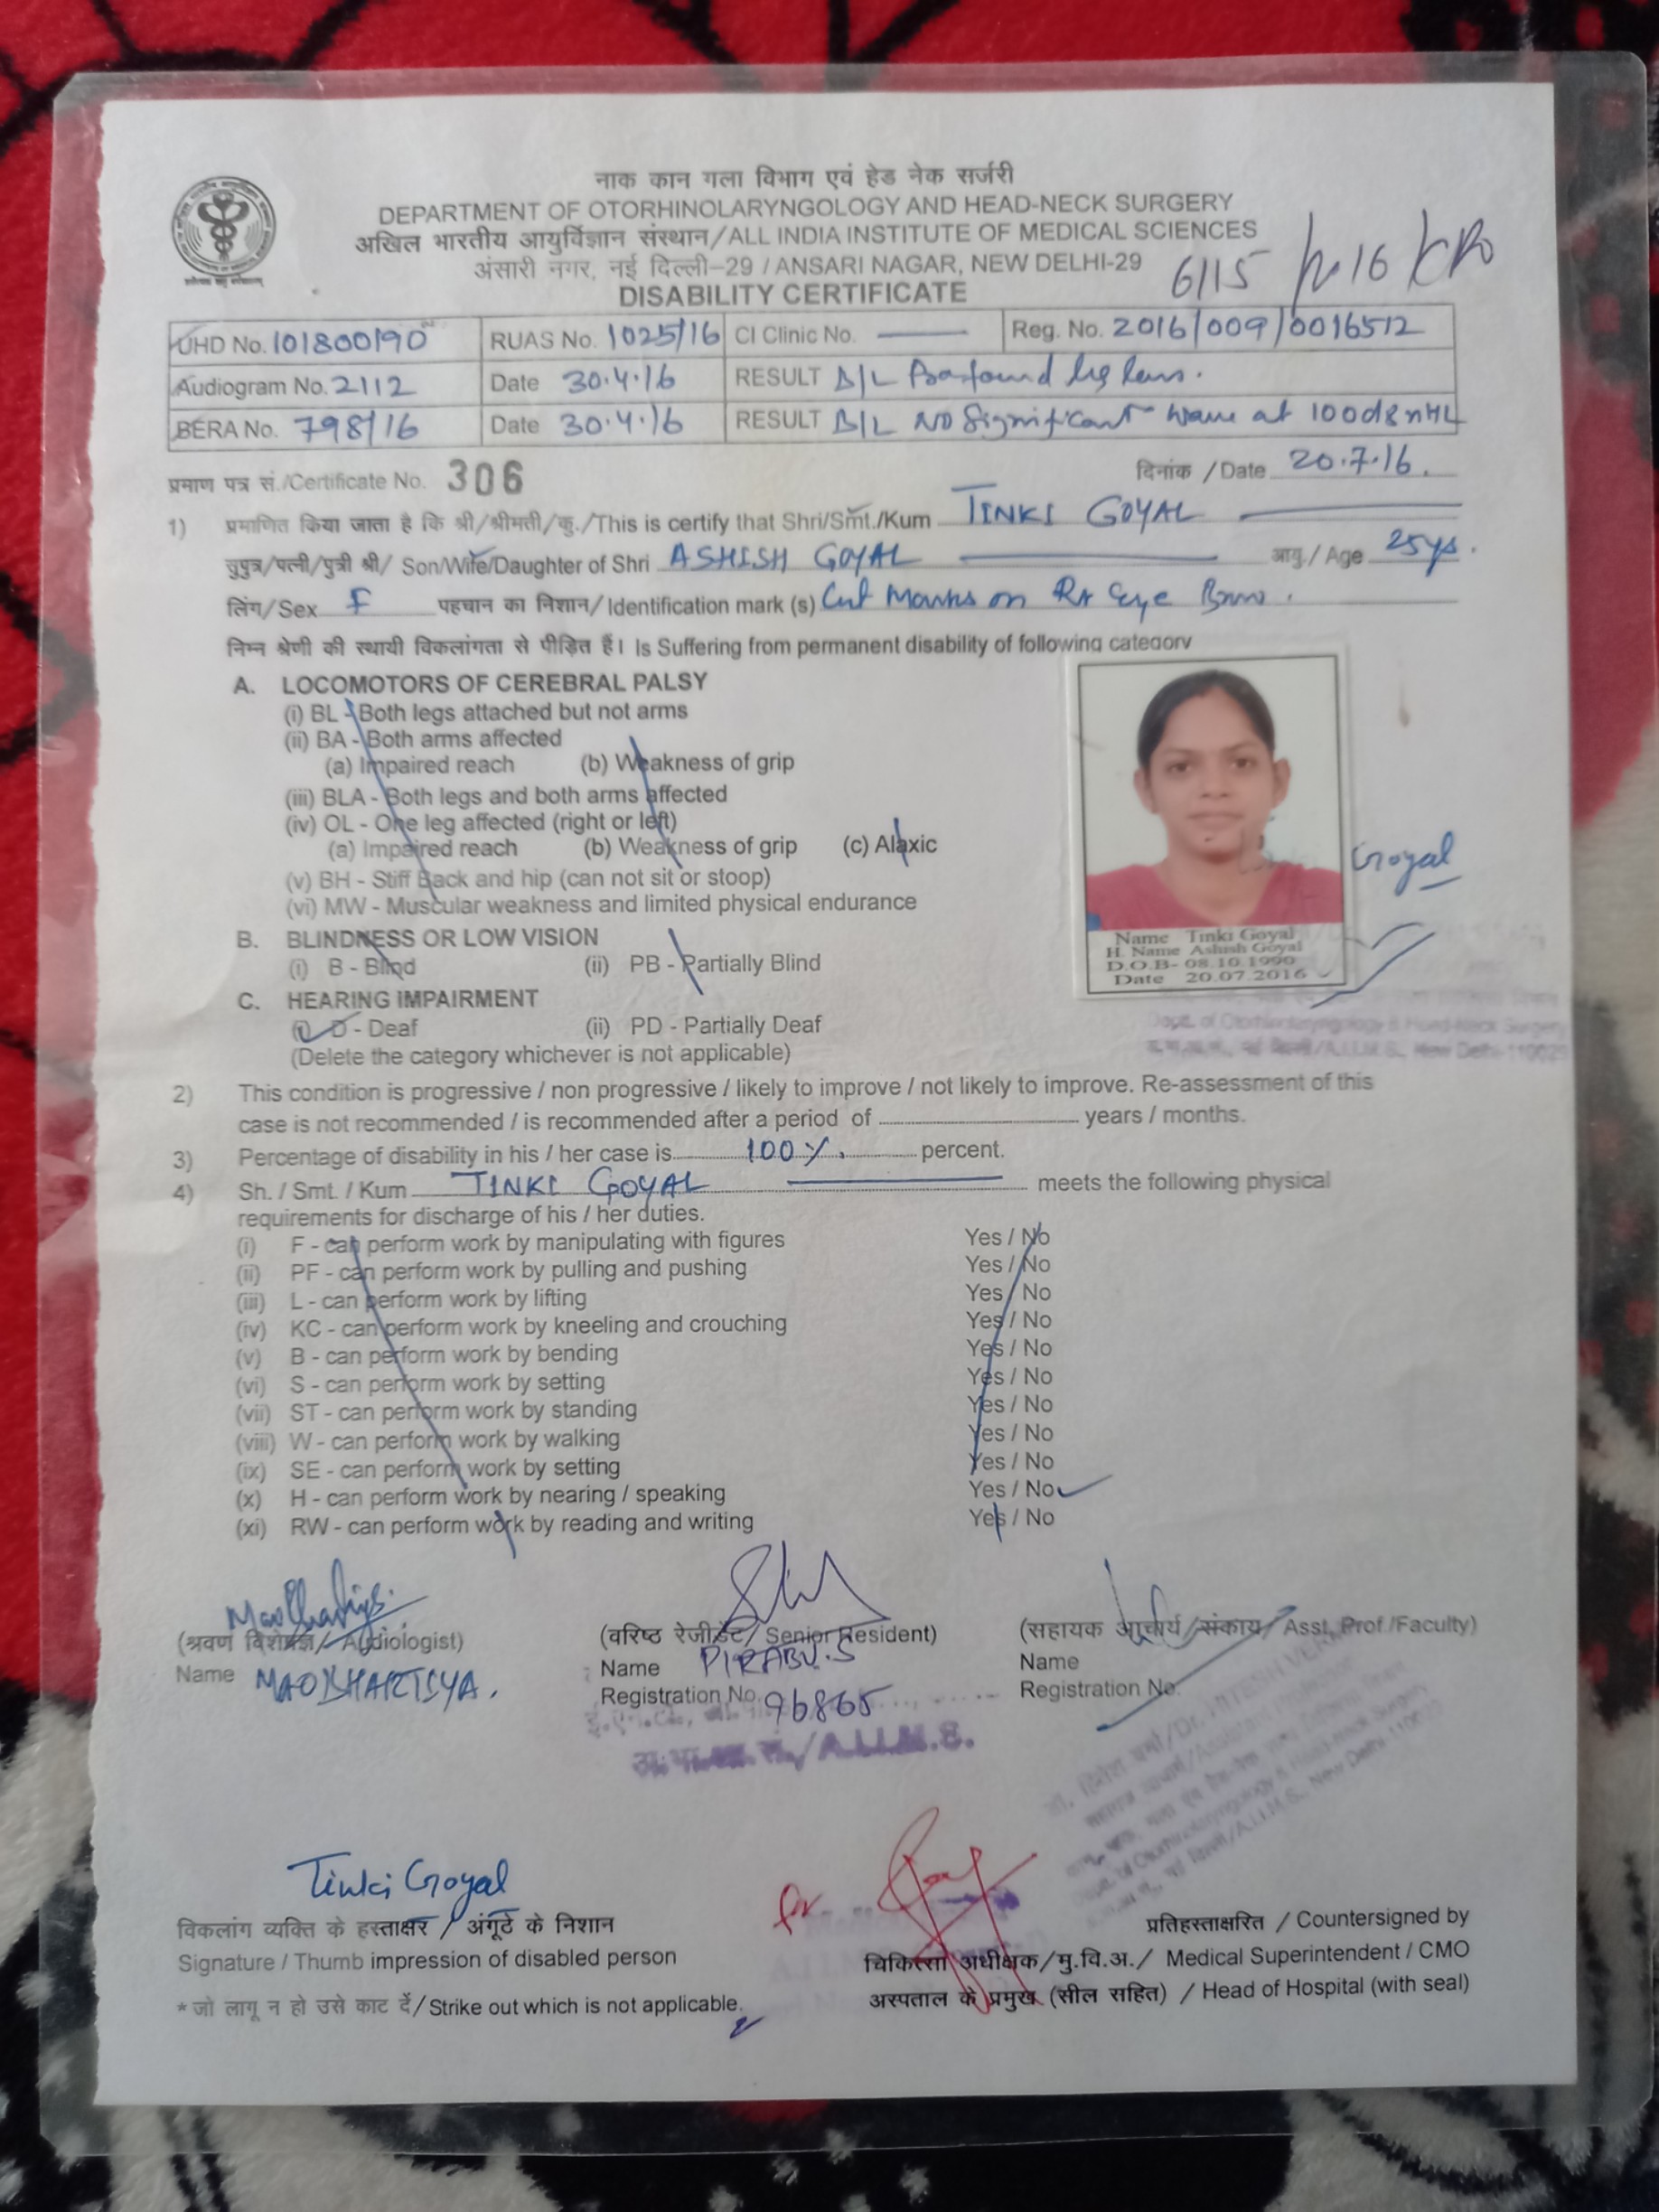 नाक कान गला विभाग एवं हेड नेक सर्जरी
DEPARTMENT OF OTORHINOLARYNGOLOGY AND HEAD-NECK SURGERY
अखिल भारतीय आयुर्विज्ञान संस्थान/ALL INDIA INSTITUTE OF MEDICAL SCIENCES
अंसारी नगर, नई दिल्ली-29 / ANSARI NAGAR, NEW DELHI-29
DISABILITY CERTIFICATE
6115
UHD No. 101800190 RUAS No. 1025/16 CI Clinic No. Reg. No. 2016/009/0016512
Audiogram No. 2112 Date 30.4.16 RESULT B/L Profound hg loss.
BERA No. 798/16 Date 30.4.16 RESULT B/L NO Significant wave at 100dBnHL
प्रमाण पत्र सं./Certificate No. 306 दिनांक /Date 20.7.16.
1) प्रमाणित किया जाता है कि श्री/श्रीमती/कु./This is certify that Shri/Smt./Kum TINKI GOYAL
सुपुत्र/पत्नी/पुत्री श्री/ Son/Wife/Daughter of Shri ASHISH GOYAL आयु./ Age 25ys.
लिंग/Sex F पहचान का निशान/ Identification mark (s) Cut Marks on Rt Eye Brow.
निम्न श्रेणी की स्थायी विकलांगता से पीड़ित हैं। Is Suffering from permanent disability of following category
A. LOCOMOTORS OF CEREBRAL PALSY
(i) BL - Both legs attached but not arms
(ii) BA - Both arms affected
(a) Impaired reach (b) Weakness of grip
(iii) BLA - Both legs and both arms affected
(iv) OL - One leg affected (right or left)
(a) Impaired reach (b) Weakness of grip (c) Alaxic
(v) BH - Stiff Back and hip (can not sit or stoop)
(vi) MW - Muscular weakness and limited physical endurance
Goyal
Name Tinki Goyal
H. Name Ashish Goyal
D.O.B- 08.10.1990
Date 20.07.2016
B. BLINDNESS OR LOW VISION
(i) B - Blind (ii) PB - Partially Blind
C. HEARING IMPAIRMENT
(i) D - Deaf (ii) PD - Partially Deaf
(Delete the category whichever is not applicable)
Dept. of Otorhinolaryngology & Head-Neck Surgery
/A.I.I.M.S., New Delhi-110029
2) This condition is progressive / non progressive / likely to improve / not likely to improve. Re-assessment of this
case is not recommended / is recommended after a period of years / months.
3) Percentage of disability in his / her case is 100%. percent.
4) Sh. / Smt. / Kum TINKI GOYAL meets the following physical
requirements for discharge of his / her duties.
(i) F - can perform work by manipulating with figures Yes / No
(ii) PF - can perform work by pulling and pushing Yes / No
(iii) L - can perform work by lifting Yes / No
(iv) KC - can perform work by kneeling and crouching Yes / No
(v) B - can perform work by bending Yes / No
(vi) S - can perform work by setting Yes / No
(vii) ST - can perform work by standing Yes / No
(viii) W - can perform work by walking Yes / No
(ix) SE - can perform work by setting Yes / No
(x) H - can perform work by nearing / speaking Yes / No
(xi) RW - can perform work by reading and writing Yes / No
(श्रवण विशेषज्ञ/ Audiologist) (वरिष्ठ रेजीडेंट/ Senior Resident) (सहायक आचार्य/संकाय/ Asst. Prof./Faculty)
Name Name PIRABU.S Name
Registration No. 96865 Registration No.
/A.I.I.M.S.
/Dr. HITESH VERMA
Tinki Goyal
for
विकलांग व्यक्ति के हस्ताक्षर / अंगूठे के निशान प्रतिहस्ताक्षरित / Countersigned by
Signature / Thumb impression of disabled person चिकित्सा अधीक्षक/मु.वि.अ./ Medical Superintendent / CMO
*जो लागू न हो उसे काट दें/Strike out which is not applicable. अस्पताल के प्रमुख (सील सहित) / Head of Hospital (with seal)